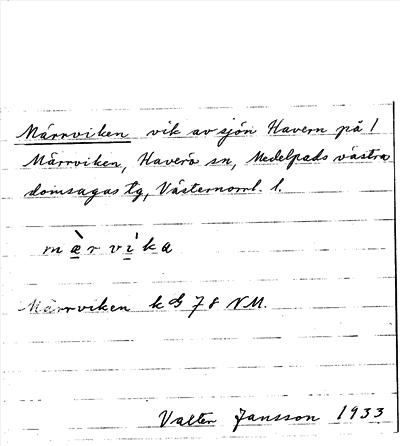 Märrviken vik av sjön Havern på 1
Märrviken, Haverö sn, Medelpads västra
domsagas tg, Västernorrl. l.
mæ̀rvika
Märrviken k G 78 NM.
Valter Jansson 1933